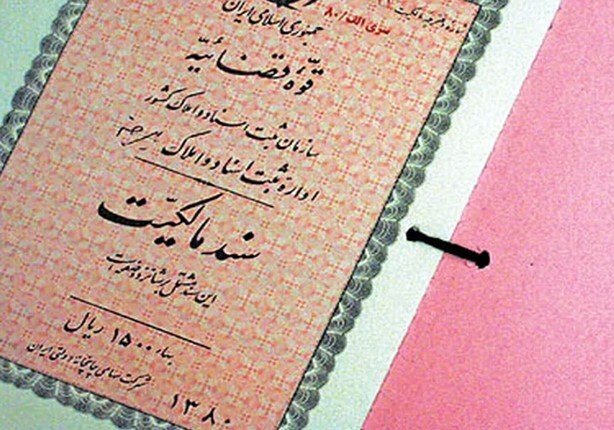 جمهوری اسلامی ایران
قوّهٔ قضائیّه
سازمان ثبت اسناد و املاک کشور
اداره ثبت اسناد و املاک بیرجند
سند مالکیّت
این سند مشتمل بر شانزده صفحه است
بهاء ۱۵۰۰ ریال
شرکت سهامی چاپخانه دولتی ایران
۱۳۸۰